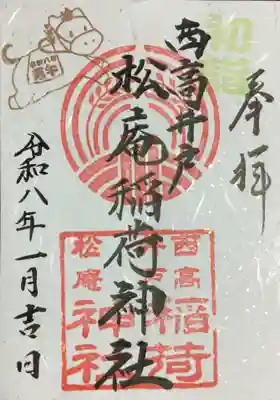 奉拝
初詣
西高井戸
松庵稲荷神社
令和八年一月吉日
令和八年
丙午
西高
稲荷
松庵
神社